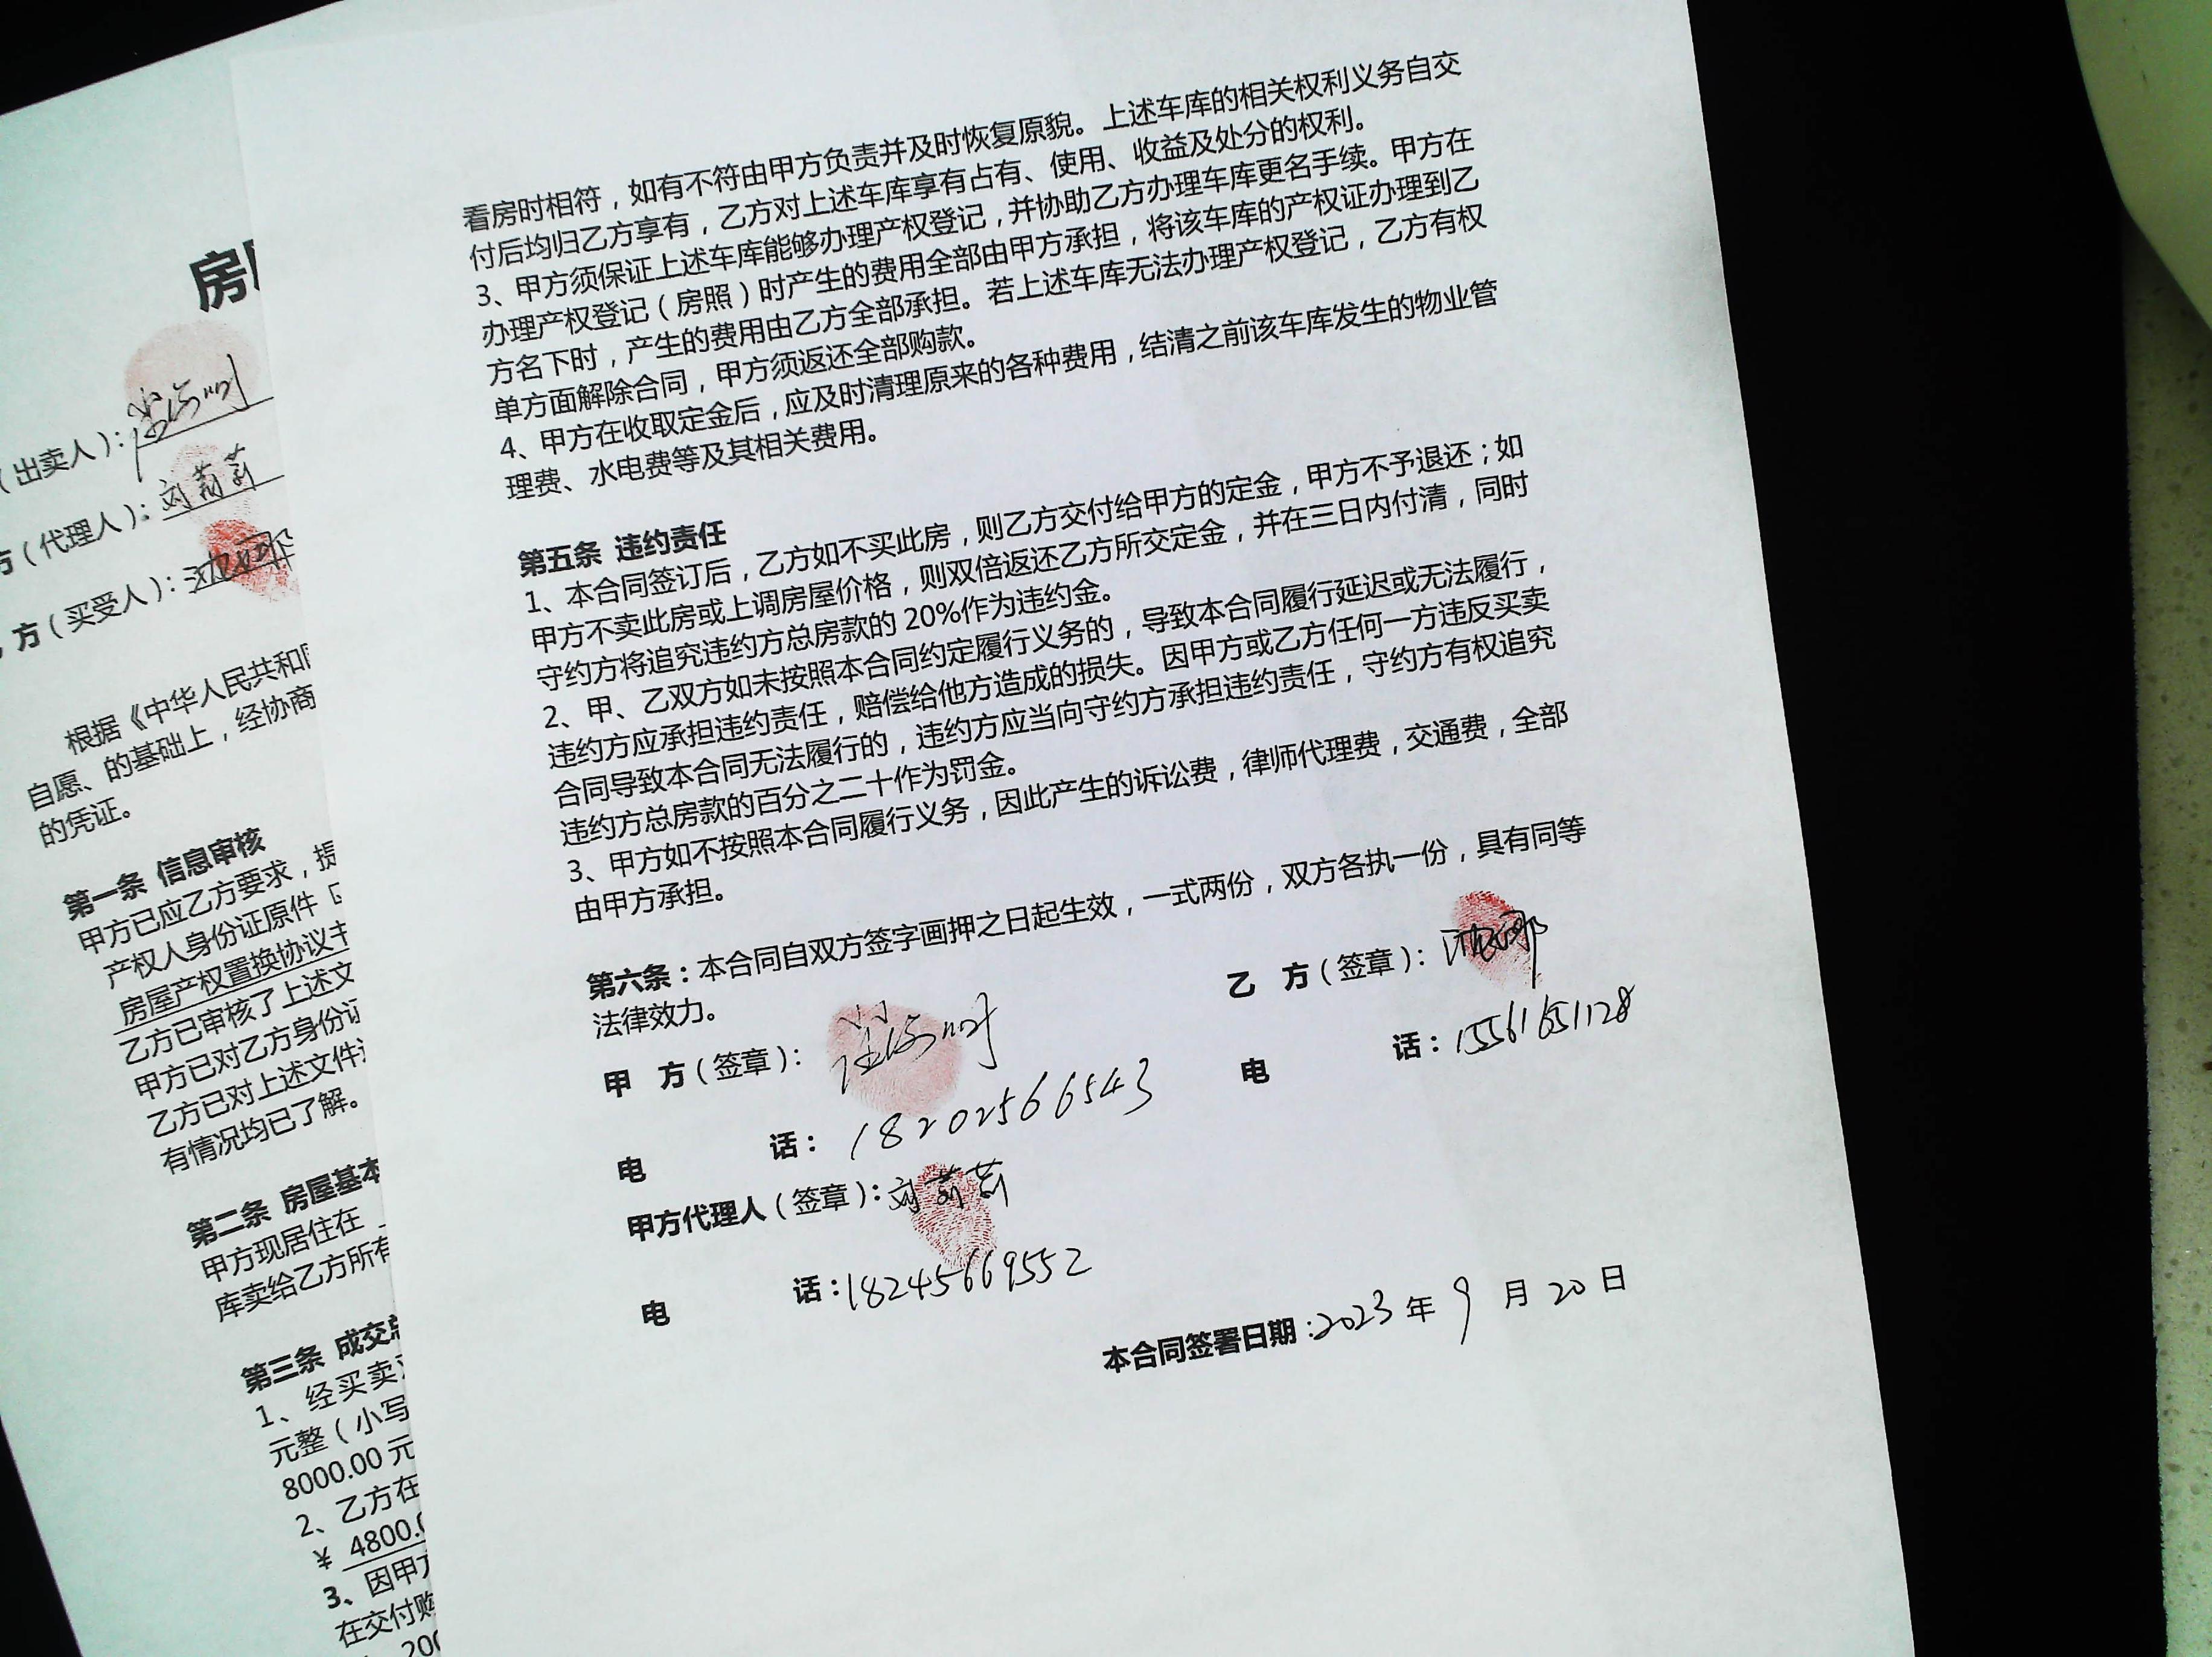 房
（出卖人）：
方（代理人）：刘莉莉
方（买受人）：
根据《中华人民共和
自愿、的基础上，经协商
的凭证。
第一条 信息审核
甲方已应乙方要求，提
产权人身份证原件
房屋产权置换协议书
乙方已审核了上述文
甲方已对乙方身份证
乙方已对上述文件
有情况均已了解。
第二条 房屋基本
甲方现居住在
库卖给乙方所有
第三条 成交总
1、经买卖双
元整（小写
8000.00 元
2、乙方在
¥ 4800.0
3、因甲方
在交付购
200
看房时相符，如有不符由甲方负责并及时恢复原貌。上述车库的相关权利义务自交
付后均归乙方享有，乙方对上述车库享有占有、使用、收益及处分的权利。
3、甲方须保证上述车库能够办理产权登记，并协助乙方办理车库更名手续。甲方在
办理产权登记（房照）时产生的费用全部由甲方承担，将该车库的产权证办理到乙
方名下时，产生的费用由乙方全部承担。若上述车库无法办理产权登记，乙方有权
单方面解除合同，甲方须返还全部购款。
4、甲方在收取定金后，应及时清理原来的各种费用，结清之前该车库发生的物业管
理费、水电费等及其相关费用。
第五条 违约责任
1、本合同签订后，乙方如不买此房，则乙方交付给甲方的定金，甲方不予退还；如
甲方不卖此房或上调房屋价格，则双倍返还乙方所交定金，并在三日内付清，同时
守约方将追究违约方总房款的 20%作为违约金。
2、甲、乙双方如未按照本合同约定履行义务的，导致本合同履行延迟或无法履行，
违约方应承担违约责任，赔偿给他方造成的损失。因甲方或乙方任何一方违反买卖
合同导致本合同无法履行的，违约方应当向守约方承担违约责任，守约方有权追究
违约方总房款的百分之二十作为罚金。
3、甲方如不按照本合同履行义务，因此产生的诉讼费，律师代理费，交通费，全部
由甲方承担。
第六条：本合同自双方签字画押之日起生效，一式两份，双方各执一份，具有同等
法律效力。
甲 方（签章）：
乙 方（签章）：
电 话：18202566543
电 话：15561651128
甲方代理人（签章）：刘莉莉
电 话：18245669552
本合同签署日期：2023 年 9 月 20 日